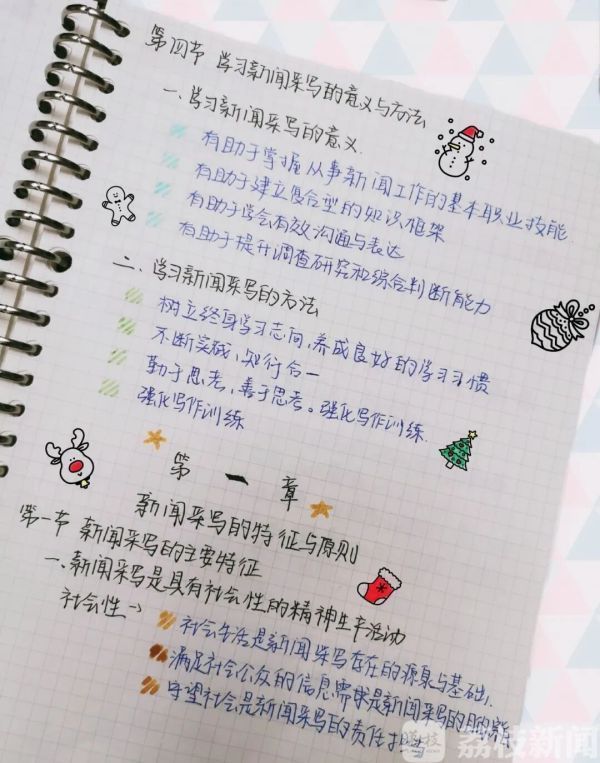 第四节 学习新闻采写的意义与方法
一、学习新闻采写的意义
有助于掌握从事新闻工作的基本职业技能
有助于建立复合型的知识框架
有助于学会有效沟通与表达
有助于提升调查研究和综合判断能力
二、学习新闻采写的方法
树立终身学习志向,养成良好的学习习惯
不断实践,知行合一
勤于思考,善于思考。强化写作训练.
强化写作训练
第一章
新闻采写的特征与原则
第一节 新闻采写的主要特征
一、新闻采写是具有社会性的精神生产活动
社会性→
社会生活是新闻采写存在的源泉与基础;
满足社会公众的信息需求是新闻采写的目的
守望社会是新闻采写的责任
荔枝 荔枝新闻